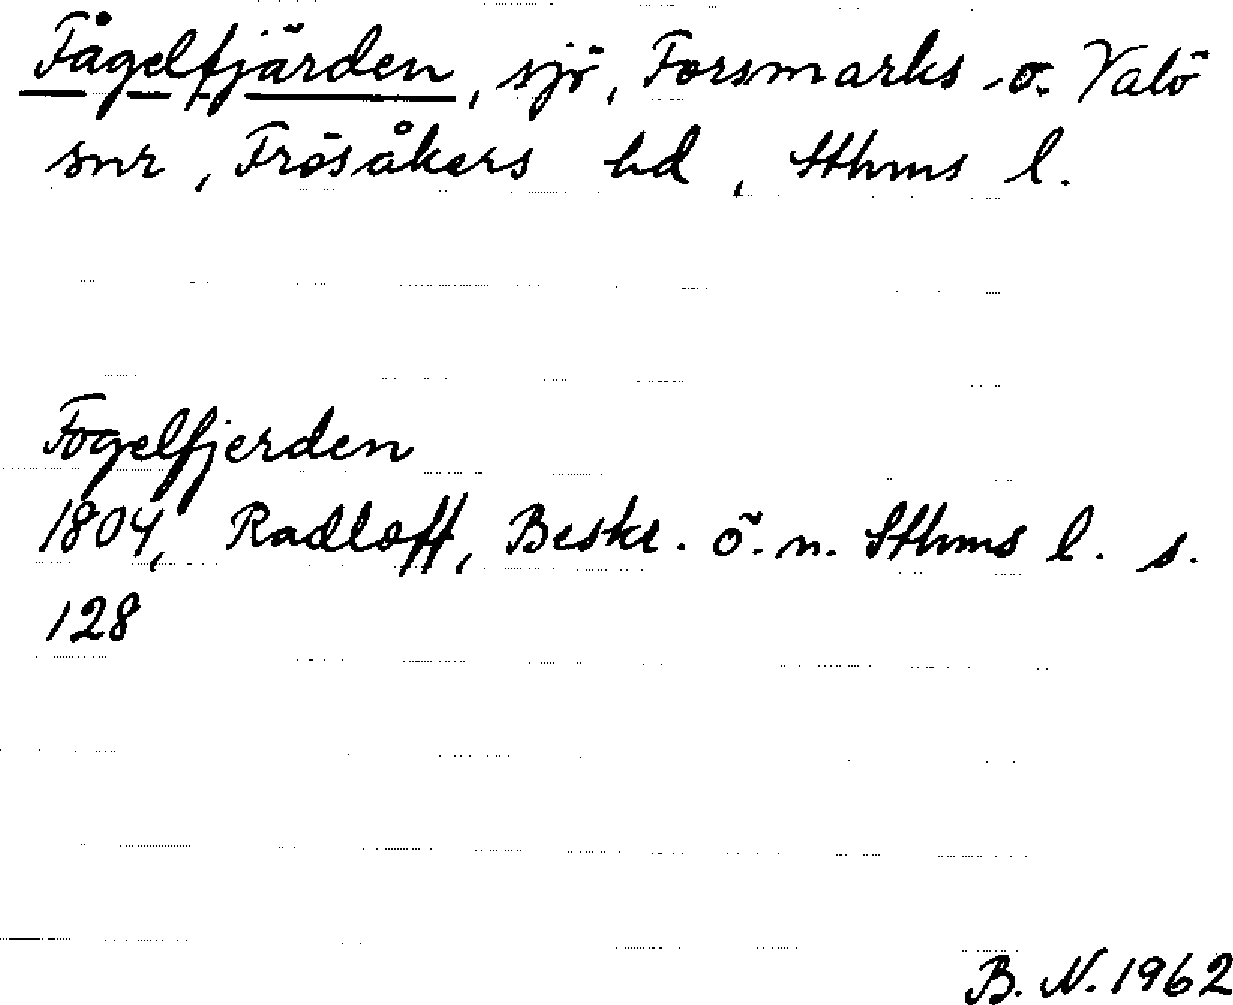 Fågelfjärden, sjö, Forsmarks o. Valö
snr, Frösåkers hd, Sthms l.
Fogelfjerden
1804, Radloff, Beskr. ö. n. Sthms l. s.
128
B. N. 1962